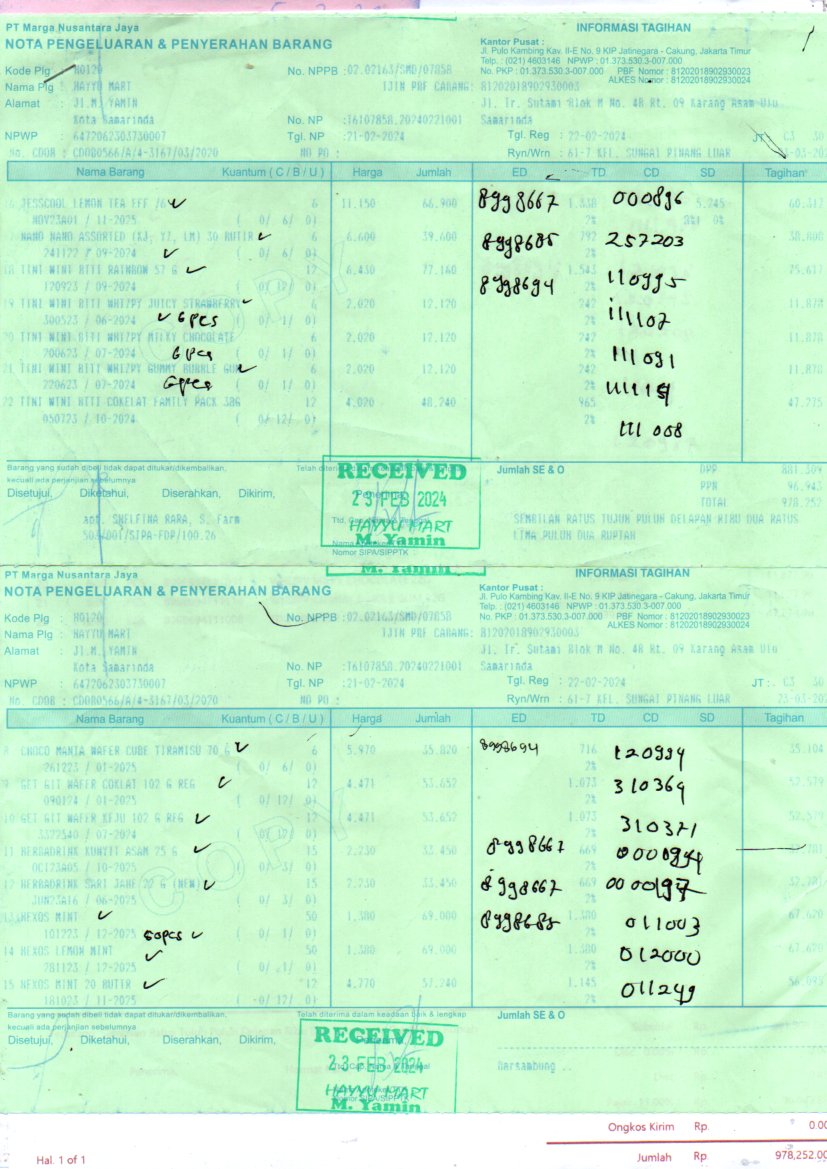 PT Marga Nusantara Jaya
NOTA PENGELUARAN & PENYERAHAN BARANG
INFORMASI TAGIHAN
Kantor Pusat :
Jl. Pulo Kambing Kav. II-E No. 9 KIP Jatinegara - Cakung, Jakarta Timur
Telp. : (021) 4603146 NPWP : 01.373.530.3-007.000
No. PKP : 01.373.530.3-007.000 PBF Nomor : 81202018902930023
ALKES Nomor : 81202018902930024
Kode Plg : H0120 No. NPPB :02.02163/SMD/07858
Nama Plg : HAYYU MART IJIN PBF CABANG: 81202018902930003
Alamat : JI.M. YAMIN Jl. Ir. Sutami Blok M No. 48 Rt. 09 Karang Asam Ulu
Kota Samarinda No. NP :16107858.20240221001 Samarinda
NPWP : 6472062303730007 Tgl. NP :21-02-2024 Tgl. Reg : 22-02-2024 JT : C3 30
No. CDOB : CDOB0566/A/4-3167/03/2020 NO PO : Ryn/Wrn : 61-7 KEL. SUNGAI PINANG LUAR
Nama Barang Kuantum ( C / B / U ) Harga Jumlah ED TD CD SD Tagihan
JESSCOOL LEMON TEA EFF /6 6 11.150 66.900 8998667 1.338 000896 5.245
NOV23A01 / 11-2025 ( 0/ 6/ 0) 2% 0%
NANO NANO ASSORTED (KJ, YZ, LM) 30 BUTIR 6 6.600 39.600 792 257203
241122 / 09-2024 ( 0/ 6/ 0) 2%
TINI WINI BITI RAINBOW 57 G 12 6.430 77.160 8998694 1.543 110995
120923 / 09-2024 ( 0/ 12/ 0) 2%
19 TINI WINI BITI WHIZPY JUICY STRAWBERRY 6 2.020 12.120 242 111107 11.878
300523 / 06-2024 6pcs ( 0/ 1/ 0) 2%
20 TINI WINI BITI WHIZPY MILKY CHOCOLATE 6 2.020 12.120 242 11.878
200623 / 07-2024 6pcs ( 0/ 1/ 0) 2% 111091
21 TINI WINI BITI WHIZPY GUMMY BUBBLE GUM 6 2.020 12.120 242 11.878
220623 / 07-2024 6pcs ( 0/ 1/ 0) 2%
22 TINI WINI BITI COKELAT FAMILY PACK 38G 12 4.020 48.240 965 47.275
050723 / 10-2024 ( 0/ 12/ 0) 2% 111 008
Barang yang sudah dibeli tidak dapat ditukar/dikembalikan,
kecuali ada perjanjian sebelumnya
Jumlah SE & O DPP 881.309
PPN 96.943
TOTAL 978.252
Disetujui, Diketahui, Diserahkan, Dikirim,
RECEIVED
23 FEB 2024
HAYYU MART
M. Yamin
Nomor SIPA/SIPPTK
apt. SNELFINA RARA, S. Farm
SEMBILAN RATUS TUJUH PULUH DELAPAN RIBU DUA RATUS
LIMA PULUH DUA RUPIAH
M. Yamin
PT Marga Nusantara Jaya
NOTA PENGELUARAN & PENYERAHAN BARANG
INFORMASI TAGIHAN
Kantor Pusat :
Jl. Pulo Kambing Kav. II-E No. 9 KIP Jatinegara - Cakung, Jakarta Timur
Telp. : (021) 4603146 NPWP : 01.373.530.3-007.000
No. PKP : 01.373.530.3-007.000 PBF Nomor : 81202018902930023
ALKES Nomor : 81202018902930024
Kode Plg : H0120 No. NPPB :02.02163/SMD/07858
Nama Plg : HAYYU MART IJIN PBF CABANG: 81202018902930003
Alamat : JI.M. YAMIN Jl. Ir. Sutami Blok M No. 48 Rt. 09 Karang Asam Ulu
Kota Samarinda No. NP :16107858.20240221001 Samarinda
NPWP : 6472062303730007 Tgl. NP :21-02-2024 Tgl. Reg : 22-02-2024 JT : C3 30
No. CDOB : CDOB0566/A/4-3167/03/2020 NO PO : Ryn/Wrn : 61-7 KEL. SUNGAI PINANG LUAR
Nama Barang Kuantum ( C / B / U ) Harga Jumlah ED TD CD SD Tagihan
8 CHOCO MANIA WAFER CUBE TIRAMISU 70 G 6 5.970 35.820 8998694 716 120994 35.104
261223 / 01-2025 ( 0/ 6/ 0) 2%
9 GET GIT WAFER COKLAT 102 G REG 12 4.471 53.652 1.073 310369 52.579
090124 / 01-2025 ( 0/ 12/ 0) 2%
10 GET GIT WAFER KEJU 102 G REG 12 4.471 53.652 1.073 310371 52.579
/ 07-2024 ( 0/ 12/ 0) 2%
11 HERBADRINK KUNYIT ASAM 25 G 15 2.230 33.450 8998667 669
OCT23A05 / 10-2025 ( 0/ 3/ 0) 2%
12 HERBADRINK SARI JAHE 22 G (NEW) 15 2.230 33.450 8998667 669
JUN23A16 / 06-2025 ( 0/ 3/ 0) 2%
13 HEXOS MINT 50 1.380 69.000 1.380 011003 67.620
101223 / 12-2025 50pcs ( 0/ 1/ 0) 2%
14 HEXOS LEMON MINT 50 1.380 69.000 1.380 012000 67.620
281123 / 12-2025 ( 0/ 1/ 0) 2%
15 NEXOS MINT 20 BUTIR 12 4.770 57.240 1.145 011249 56.095
181023 / 11-2025 ( 0/ 12/ 0) 2%
Barang yang sudah dibeli tidak dapat ditukar/dikembalikan, Telah diterima dalam keadaan baik & lengkap
kecuali ada perjanjian sebelumnya
Jumlah SE & O
Disetujui, Diketahui, Diserahkan, Dikirim,
RECEIVED
23 FEB 2024
HAYYU MART
M. Yamin
Bersambung ..
Ongkos Kirim Rp. 0.00
Hal. 1 of 1
Jumlah Rp. 978,252.00